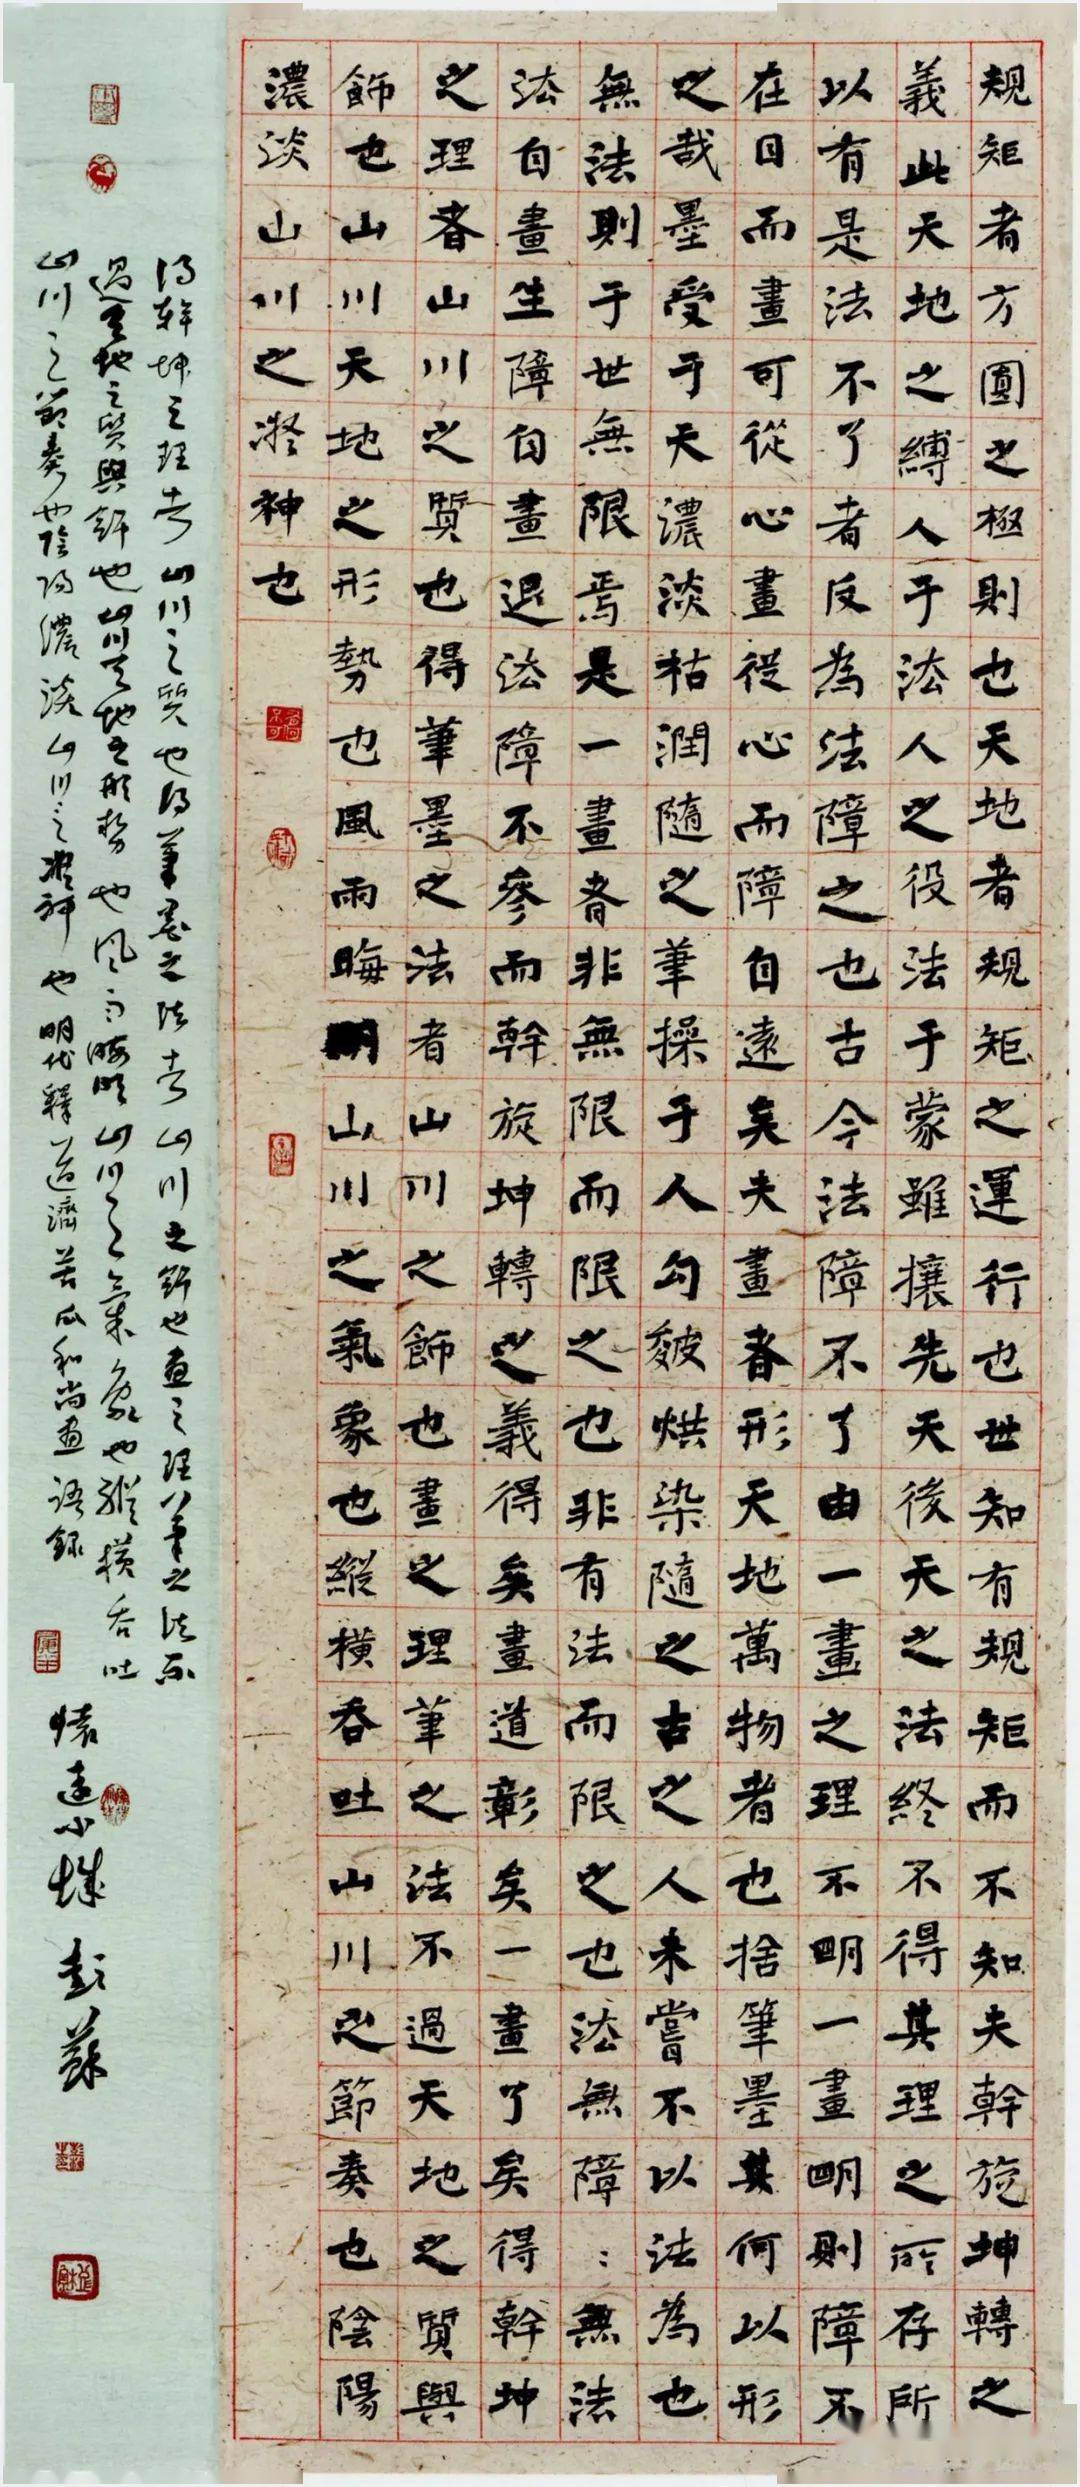 規矩者方圓之極則也天地者規矩之運行也世知有規矩而不知夫幹旋坤轉之
義此天地之縛人于法人之役法于蒙雖攘先天後天之法終不得其理之所存所
以有是法不了者反為法障之也古今法障不了由一畫之理不明一畫明則障不
在目而畫可從心畫從心而障自遠矣夫畫者形天地萬物者也捨筆墨其何以形
之哉墨受于天濃淡枯潤隨之筆操于人勾皴烘染隨之古之人未嘗不以法為也
無法則于世無限焉是一畫者非無限而限之也非有法而限之也法無障〻無法
法自畫生障自畫退法障不參而幹旋坤轉之義得矣畫道彰矣一畫了矣得幹坤
之理者山川之質也得筆墨之法者山川之飾也畫之理筆之法不過天地之質與
飾也山川天地之形勢也風雨晦明山川之氣象也縱橫吞吐山川之節奏也陰陽
濃淡山川之凝神也
得幹坤之理者山川之質也得筆墨之法者山川之飾也畫之理筆之法不
過天地之質與飾也山川天地之形勢也風雨晦明山川之氣象也縱橫吞吐
山川之節奏也陰陽濃淡山川之凝神也明代釋道濟苦瓜和尚畫語錄
懷遠小城彭蘇